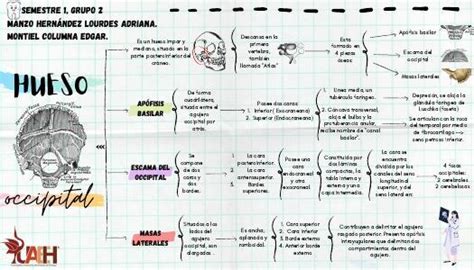 SEMESTRE 1, GRUPO 2
MANZO HERNÁNDEZ LOURDES ADRIANA.
MONTIEL COLUMNA EDGAR.
HUESO
occipital
UAEH
Es un hueso impar y
mediano, situado en la
parte posteroinferior del
cráneo.
Descansa en la
primera
vertebra,
también
llamada "Atlas"
Esta
formado en
4 piezas
óseas
Apófisis basilar
Escama del
occipital
Masas laterales
APÓFISIS
BASILAR
De forma
cuadrilátera,
situada entre el
agujero
occipital por
atrás.
Posee dos caras
1. Inferior (Exocraneana)
2. Superior (Endocraneana)
1. Línea media, un
tubérculo faríngeo.
2. Cóncava transversal,
aloja el bulbo y la
protuberancia anular,
recibe nombre de "canal
basilar".
Depresión, se aloja la
glándula faríngea de
Luschka (faceta)
Se articulan con la roca
del temporal por medio
de fibrocartílago
ESCAMA DEL
OCCIPITAL
Se
compone
de dos
caras y
dos
bordes.
1. La cara
posteroinferior.
2. La cara
anterosuperior.
3. Bordes
superiores.
Posee una
cara
endocraneal
y otra
exocraneal.
Constituida por
dos láminas
compactas, la
tabla interna y
externa y una
capa intermedia.
La cara se
encuentra
dividida por los
canales del seno
longitudinal
superior, y del
seno lateral en:
4 fosas
occipitales:
2 cerebelosas
2 cerebrales
MASAS
LATERALES
Situadas a los
lados del
agujero
occipital, son
alargadas...
Es ancha,
aplanada y
romboidal.
1. Cara superior
2. Cara inferior
3. Borde externo
4. Borde interno
Contribuyen a delimitar el agujero
rasgado posterior. Presenta apófisis
intrayugulares que delimitan dos
compartimientos, dentro del
agujero.